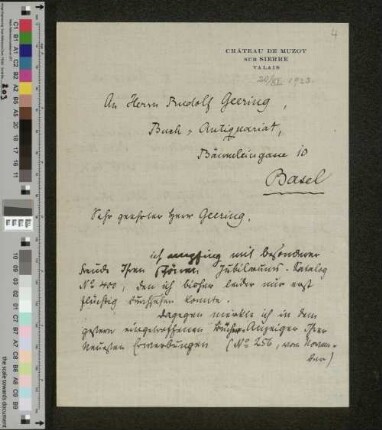 4
CHÂTEAU DE MUZOT
SUR SIERRE
VALAIS
1923.
An Herrn Rudolf Geering,
Buch- & Antiquariat,
Bäumleingasse 10
Basel
Sehr geehrter Herr Geering,
ich empfing mit besonderer
Freude Ihren schönen Jubiläums-Katalog
No 400, den ich bisher leider nur erst
flüchtig durchsehen konnte.
Dagegen merkte ich in dem
gestern eingetroffenen Bücher-Anzeiger Ihrer
Neuesten Erwerbungen (No 256, von Novem-
ber)
203
the scale towards document